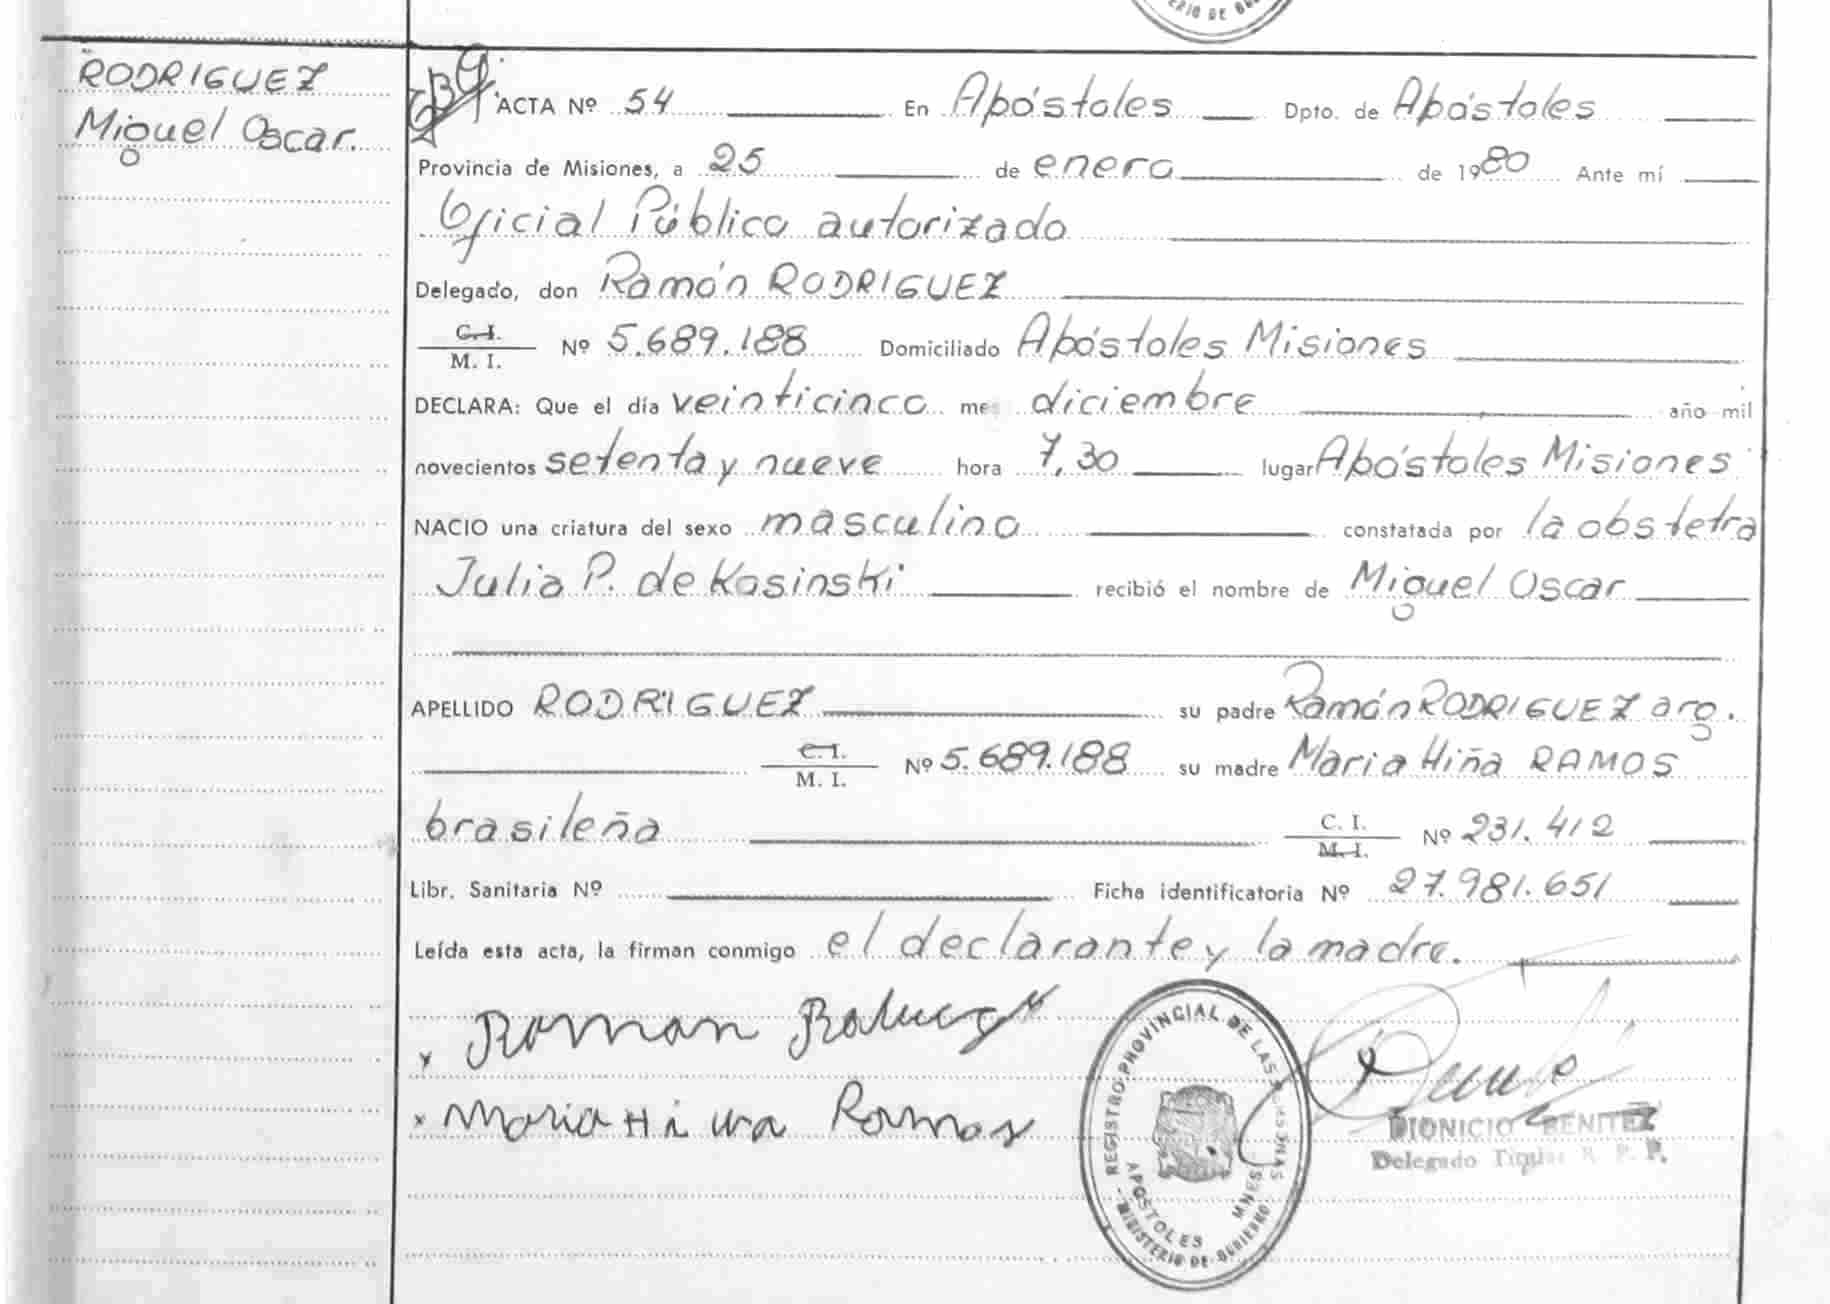 ERIO DE GOB
RODRIGUEZ
Miguel Oscar.
ACTA Nº 54 En Apóstoles Dpto. de Apóstoles
Provincia de Misiones, a 25 de enero de 1980 Ante mí
Oficial Público autorizado
Delegado, don Ramón RODRIGUEZ
C. I.
M. I. Nº 5.689.188 Domiciliado Apóstoles Misiones
DECLARA: Que el día veinticinco mes diciembre año mil
novecientos setenta y nueve hora 7,30 lugar Apóstoles Misiones
NACIO una criatura del sexo masculino constatada por la obstetra
Julia P. de Kosinski recibió el nombre de Miguel Oscar
APELLIDO RODRIGUEZ su padre Ramón RODRIGUEZ arg.
C. I.
M. I. Nº 5.689.188 su madre Maria Hiña RAMOS
brasileña C. I.
M. I. Nº 231.412
Libr. Sanitaria Nº Ficha identificatoria Nº 27.981.651
Leída esta acta, la firman conmigo el declarante y la madre.
x Roman
x Maria Hi Ramos
REGISTRO PROVINCIAL DE LAS PERSONAS
APOSTOLES MNES
- MINISTERIO DE GOBIERNO -
DIONICIO BENITEZ
Delegado Titular R. P. P.